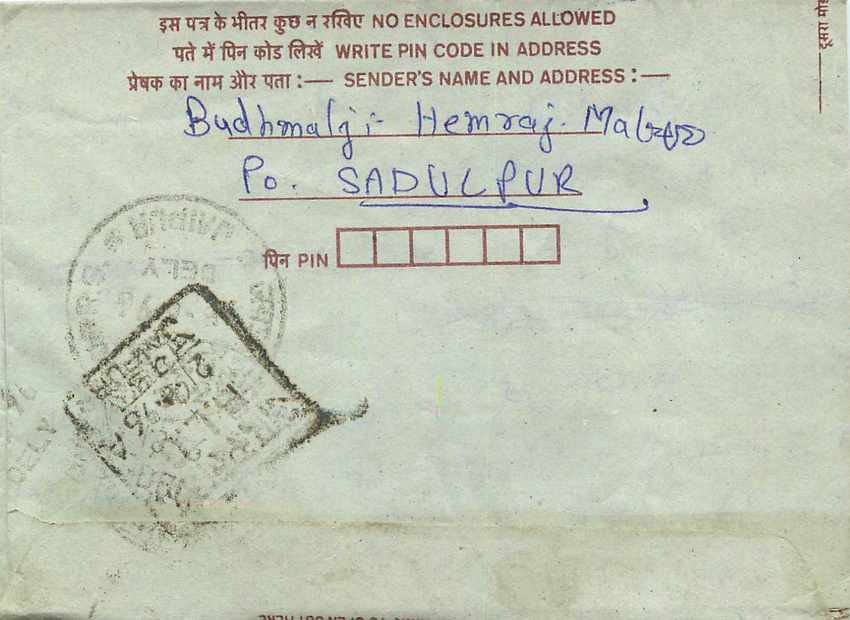 इस पत्र के भीतर कुछ न रखिए NO ENCLOSURES ALLOWED
पते में पिन कोड लिखें WRITE PIN CODE IN ADDRESS
प्रेषक का नाम और पता :— SENDER'S NAME AND ADDRESS :—
Budhmalji- Hemraj.
Po. SADULPUR
पिन PIN
JAIPUR
DELY
DELY
दूसरा मोड़